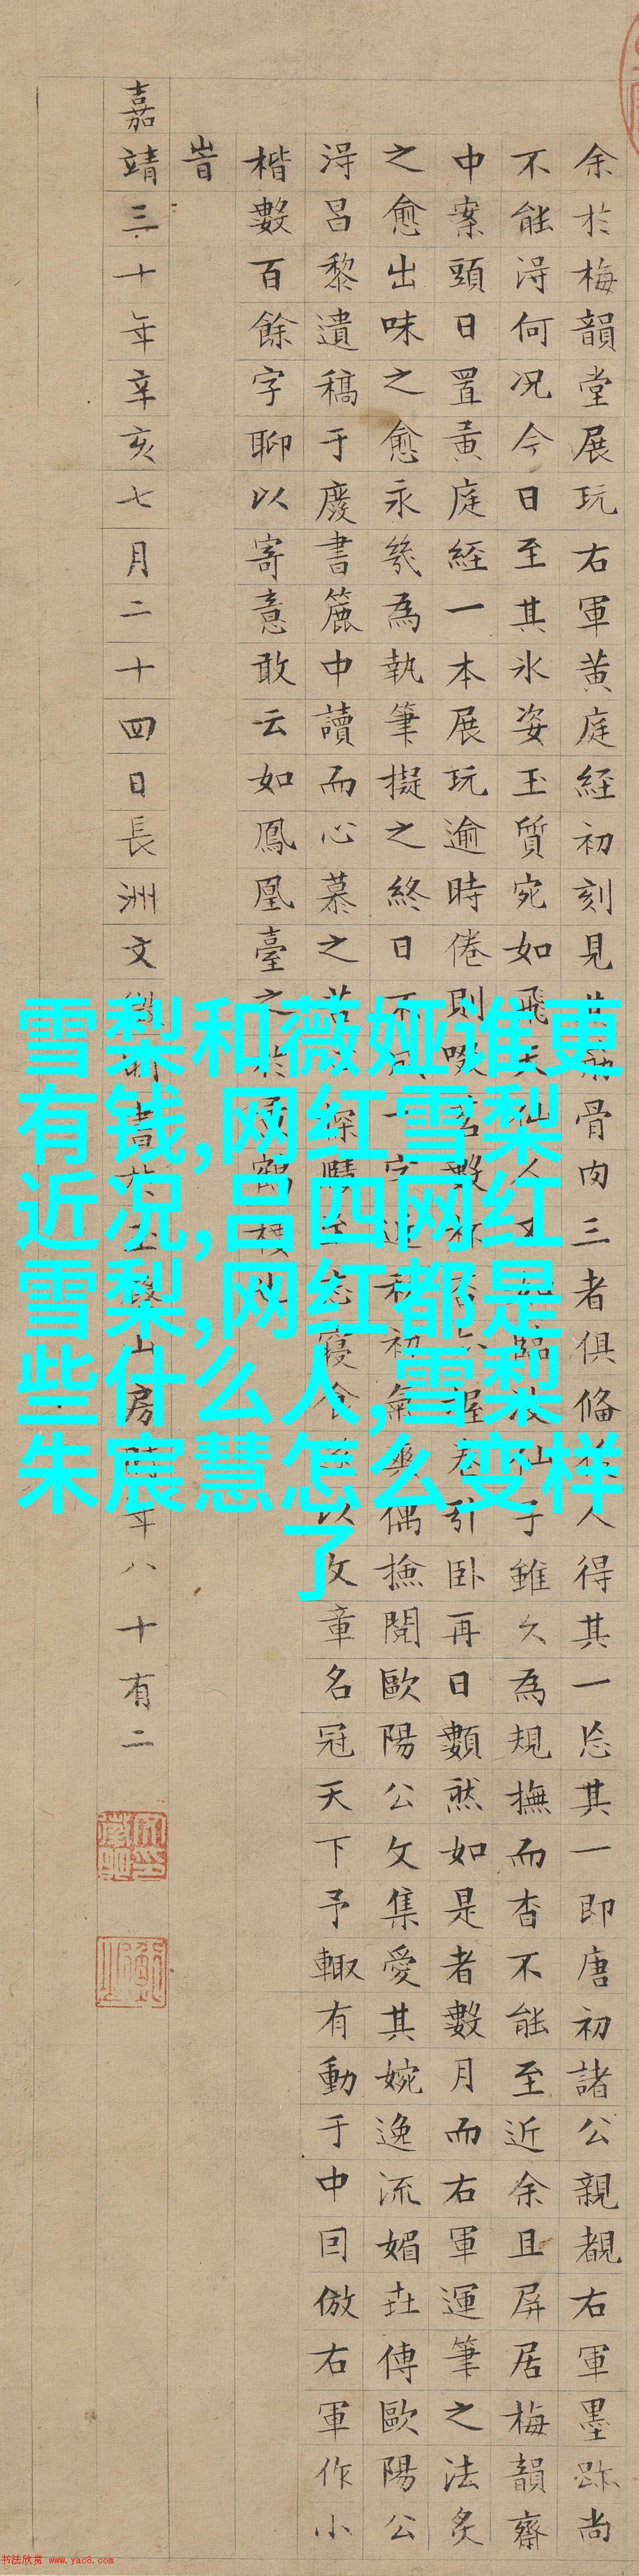 余於梅韻堂展玩右軍黄庭経初刻見骨肉三者俱俻人得其一忘其一即唐初諸公親覩右軍墨跡尚
不能淂何况今日至其氷姿玉質宛如飛仙人仙子雖久為規撫而杳不能至近余且屏居梅韻齋
中案頭日置黄庭経一本展玩逾時倦則啜數握卷引卧再日數然如是者數月而右軍運筆之法炙
之愈出味之愈永為執筆擬之終日不一字近初氣爽偶撿閱歐陽公文集愛其婉逸流媚傳歐陽公
淂呂黎遺稿于廢書簏中讀而心慕之苦探寢食以文章名冠天下予輙有動于中因倣右軍作小
楷數百餘字聊以寄意敢云如鳳凰臺之鶴樓
峕
嘉靖三十年辛亥七月二十四日長洲文書山房年八十有二
雪梨和薇娅谁更
有钱,网红雪梨
近况,吕四网红
雪梨,网红都是
些什么人,雪梨
朱宸慧怎么变样
了
书法欣赏 www.yac8.com